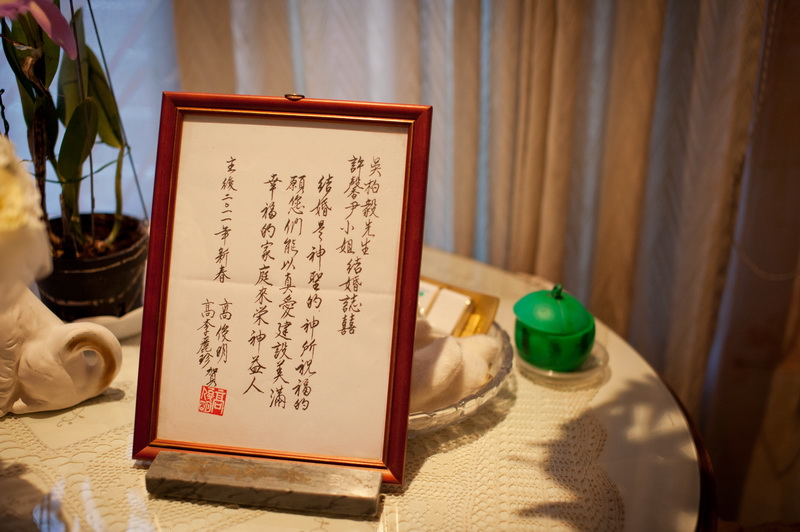 吳柏毅先生
許馨尹小姐結婚誌囍
結婚是神聖的神所祝福的
願您們能以真愛建設美滿
幸福的家庭來荣神益人
主後二〇一一年新春
高俊明
高李麗珍賀